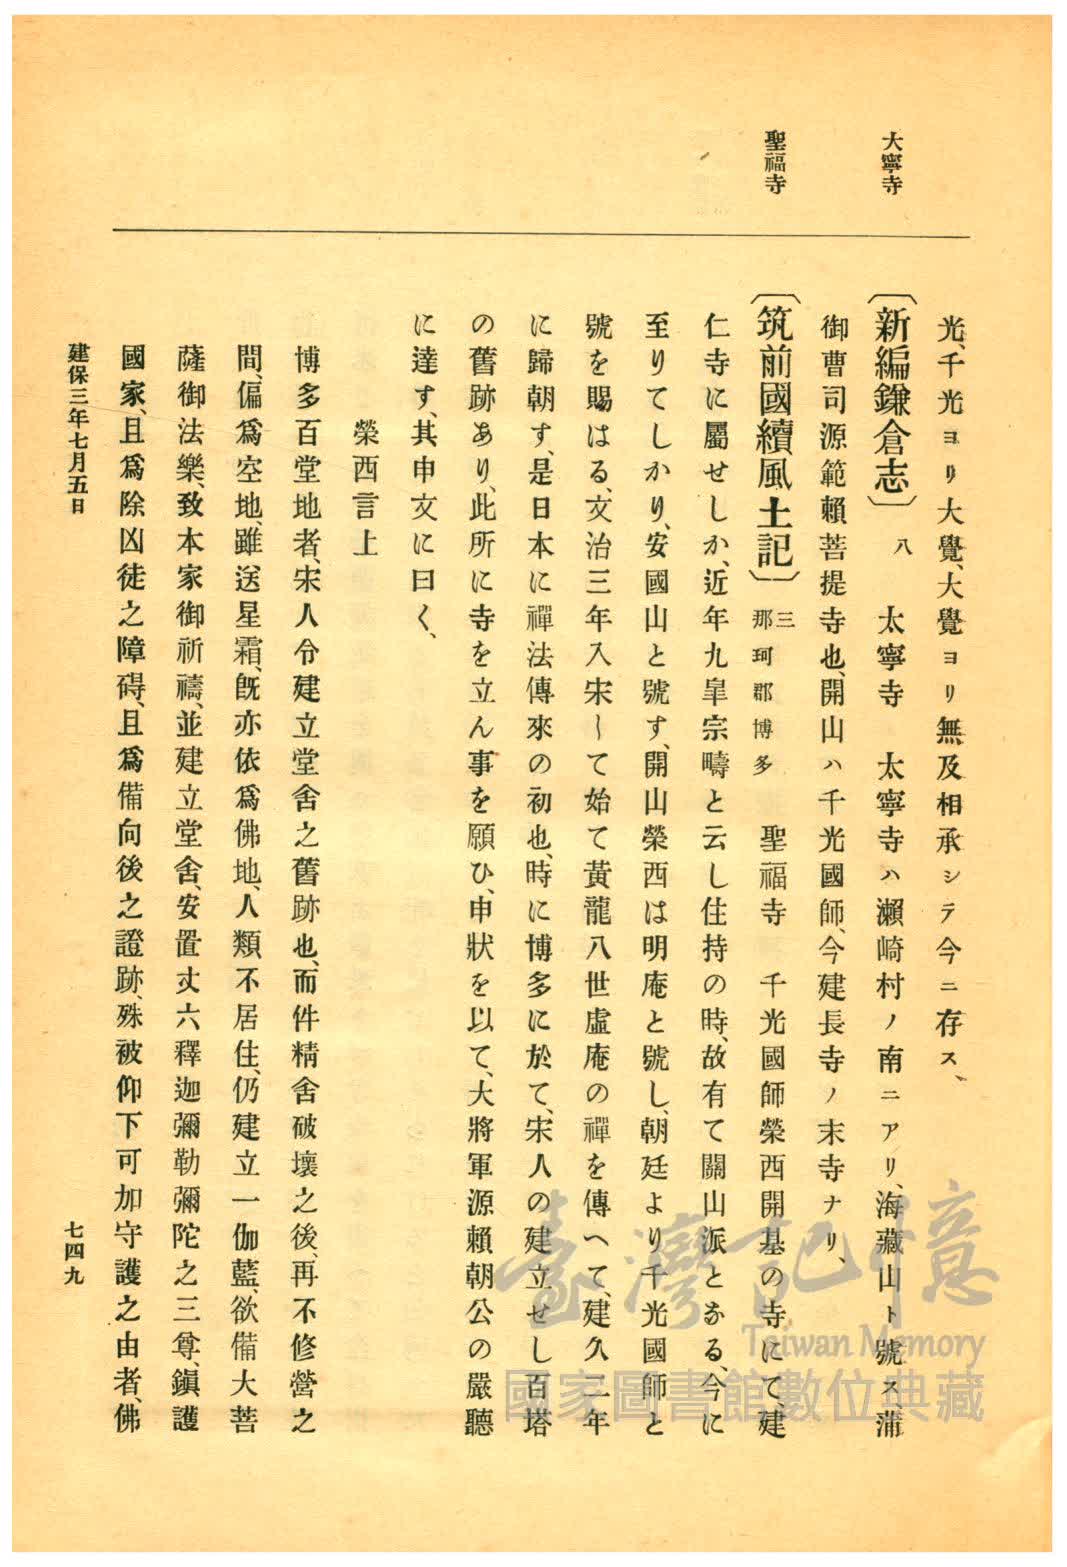 大寧寺
聖福寺
光、千光ヨリ大覺、大覺ヨリ無及相承シテ今ニ存ス、
〔新編鎌倉志〕八　太寧寺　太寧寺ハ瀬崎村ノ南ニアリ、海藏山ト號ス、蒲
御曹司源範賴菩提寺也、開山ハ千光國師、今建長寺ノ末寺ナリ、
〔筑前國續風土記〕三那珂郡博多　聖福寺　千光國師榮西開基の寺にて、建
仁寺に屬せしか、近年九皐宗疇と云し住持の時、故有て關山派となる、今に
至りてしかり、安國山と號す、開山榮西は明庵と號し、朝廷より千光國師と
號を賜はる、文治三年入宋して始て黄龍八世虛庵の禪を傳へて、建久二年
に歸朝す、是日本に禪法傳來の初也、時に博多に於て、宋人の建立せし百塔
の舊跡あり、此所に寺を立ん事を願ひ、申狀を以て、大將軍源賴朝公の嚴聽
に達す、其申文に曰く、
榮西言上
博多百堂地者、宋人令建立堂舍之舊跡也、而件精舍破壞之後、再不修營之
間、偏爲空地、雖送星霜、既亦依爲佛地、人類不居住、仍建立一伽藍、欲備大菩
薩御法樂、致本家御祈禱、並建立堂舍、安置丈六釋迦彌勒彌陀之三尊、鎭護
國家、且爲除凶徒之障碍、且爲備向後之證跡、殊被仰下可加守護之由者、佛
建保三年七月五日
七四九
臺灣記憶
Taiwan Memory
國家圖書館數位典藏